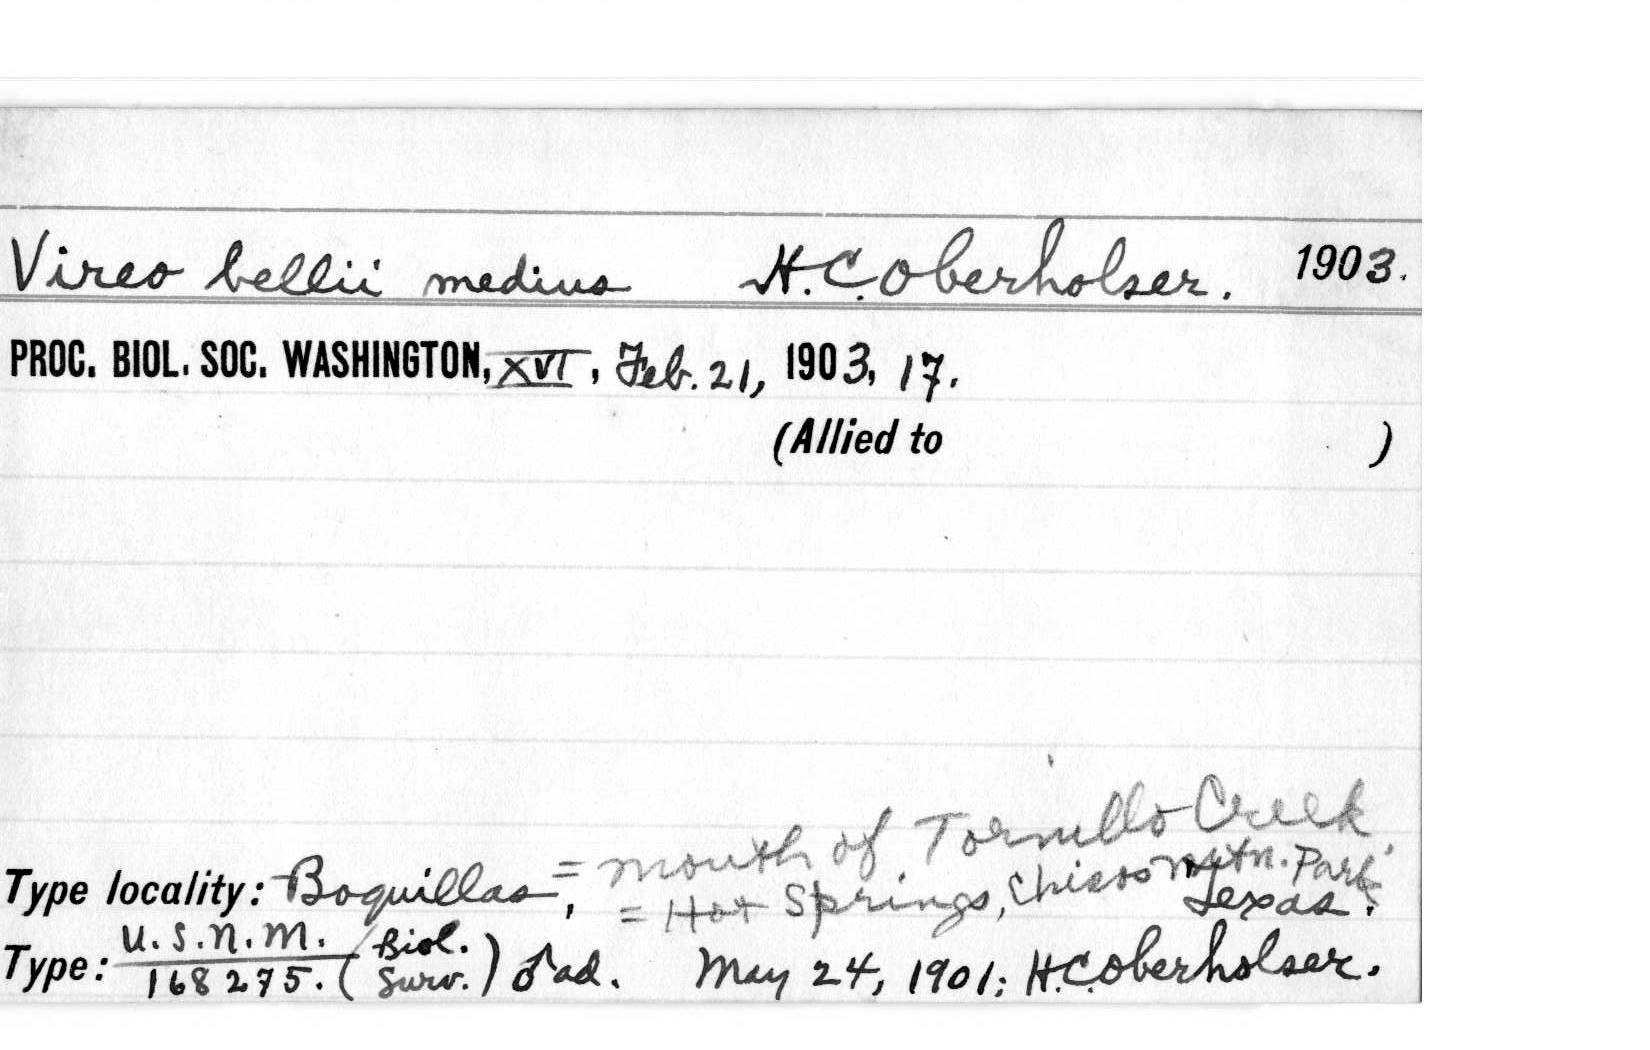 Vireo bellii medius H.C. Oberholser. 1903.
PROC. BIOL. SOC. WASHINGTON, XVI, Feb. 21, 1903, 17.
(Allied to )
= mouth of Tornillo Creek
Type locality: Boquillas, = Hot Springs, Chisos Mtn. Park
Texas.
U.S.N.M.
Type: 168275. (Biol. Surv.) ♂ ad. May 24, 1901; H.C. Oberholser.